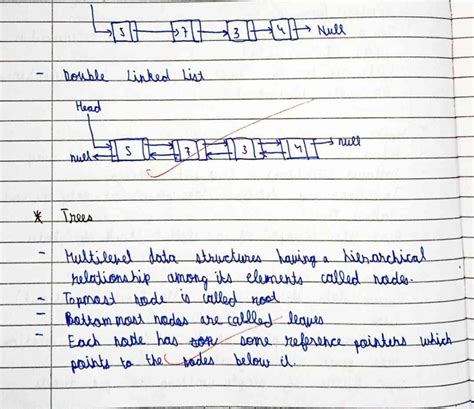 5 7 3 4 Null
- Double Linked List
Head
null 5 7 3 4 null
* Trees
- Multilevel data structures having a hierarchical
relationship among its elements called nodes.
- Topmost node is called root.
- Bottom most nodes are callled leaves
- Each node has som some reference pointers which
points to the nodes below it.